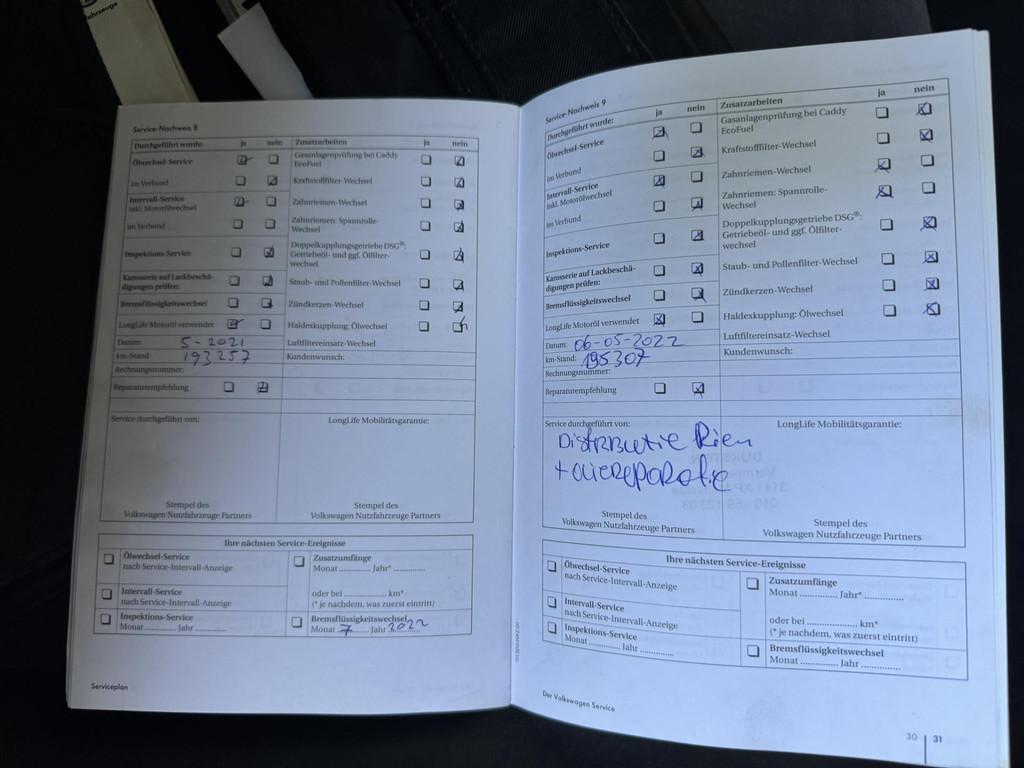 ahrzeuge
Service-Nachweis 8
Durchgeführt wurde: ja nein
Ölwechsel-Service
im Verbund
Intervall-Service
inkl. Motorölwechsel
im Verbund
Inspektions-Service
Karosserie auf Lackbeschä-
digungen prüfen:
Bremsflüssigkeitswechsel
LongLife Motoröl verwendet
Datum: 5-2021
km-Stand: 193257
Rechnungsnummer:
Reparaturempfehlung
Zusatzarbeiten ja nein
Gasanlagenprüfung bei Caddy
EcoFuel
Kraftstofffilter-Wechsel
Zahnriemen-Wechsel
Zahnriemen: Spannrolle-
Wechsel
Doppelkupplungsgetriebe DSG®:
Getriebeöl- und ggf. Ölfilter-
wechsel
Staub- und Pollenfilter-Wechsel
Zündkerzen-Wechsel
Haldexkupplung: Ölwechsel
Luftfiltereinsatz-Wechsel
Kundenwunsch:
Service durchgeführt von:
LongLife Mobilitätsgarantie:
Stempel des
Volkswagen Nutzfahrzeuge Partners
Stempel des
Volkswagen Nutzfahrzeuge Partners
Ihre nächsten Service-Ereignisse
Ölwechsel-Service
nach Service-Intervall-Anzeige
Intervall-Service
nach Service-Intervall-Anzeige
Inspektions-Service
Monat ............ Jahr ............
Zusatzumfänge
Monat ............ Jahr* ............
oder bei ............ km*
(* je nachdem, was zuerst eintritt)
Bremsflüssigkeitswechsel
Monat 7 Jahr 2022
Serviceplan
Service-Nachweis 9
Durchgeführt wurde: ja nein
Ölwechsel-Service
im Verbund
Intervall-Service
inkl. Motorölwechsel
im Verbund
Inspektions-Service
Karosserie auf Lackbeschä-
digungen prüfen:
Bremsflüssigkeitswechsel
LongLife Motoröl verwendet
Datum: 06-05-2022
km-Stand: 195307
Rechnungsnummer:
Reparaturempfehlung
Zusatzarbeiten ja nein
Gasanlagenprüfung bei Caddy
EcoFuel
Kraftstofffilter-Wechsel
Zahnriemen-Wechsel
Zahnriemen: Spannrolle-
Wechsel
Doppelkupplungsgetriebe DSG®:
Getriebeöl- und ggf. Ölfilter-
wechsel
Staub- und Pollenfilter-Wechsel
Zündkerzen-Wechsel
Haldexkupplung: Ölwechsel
Luftfiltereinsatz-Wechsel
Kundenwunsch:
Service durchgeführt von:
Distributie Riem
LongLife Mobilitätsgarantie:
Stempel des
Volkswagen Nutzfahrzeuge Partners
Stempel des
Volkswagen Nutzfahrzeuge Partners
Ihre nächsten Service-Ereignisse
Ölwechsel-Service
nach Service-Intervall-Anzeige
Intervall-Service
nach Service-Intervall-Anzeige
Inspektions-Service
Monat ............ Jahr ............
Zusatzumfänge
Monat ............ Jahr* ............
oder bei ............ km*
(* je nachdem, was zuerst eintritt)
Bremsflüssigkeitswechsel
Monat ............ Jahr ............
Der Volkswagen Service
30 | 31